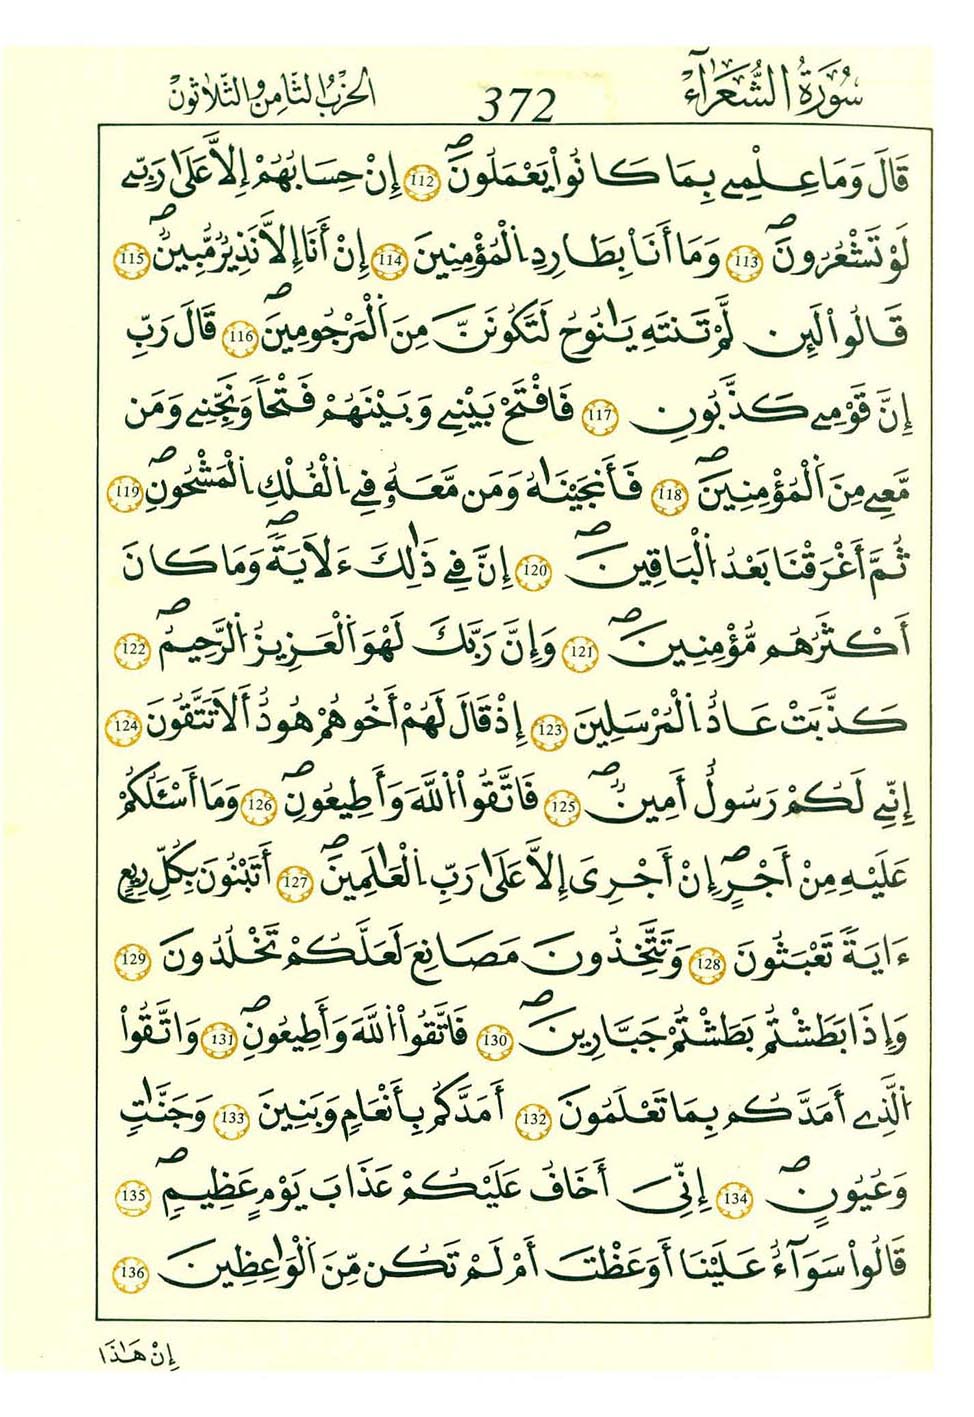 سُورَةُ الشُّعَرَآءِ 372 الحِزْبُ الثَّامِنُ وَالثَّلَاثُونَ
قَالَ وَمَا عِلْمِے بِمَا كَانُواْ يَعْمَلُونَۖ 112 إِنْ حِسَابُهُمْ إِلَّا عَلَىٰ رَبِّے
لَوْ تَشْعُرُونَۖ 113 وَمَا أَنَا بِطَارِدِ اِ۬لْمُؤْمِنِينَ 114 إِنْ أَنَا إِلَّا نَذِيرٌ مُّبِينٌۖ 115
قَالُواْ لَئِن لَّمْ تَنتَهِ يَٰنُوحُ لَتَكُونَنَّ مِنَ اَ۬لْمَرْجُومِينَۖ 116 قَالَ رَبِّ
إِنَّ قَوْمِے كَذَّبُونِ 117 فَافْتَحْ بَيْنِے وَبَيْنَهُمْ فَتْحاً وَنَجِّنِے وَمَن
مَّعِے مِنَ اَ۬لْمُؤْمِنِينَۖ 118 فَأَنجَيْنَٰهُ وَمَن مَّعَهُۥ فِے اِ۬لْفُلْكِ اِ۬لْمَشْحُونِۖ 119
ثُمَّ أَغْرَقْنَا بَعْدُ اُ۬لْبَاقِينَۖ 120 إِنَّ فِے ذَٰلِكَ ءَلَايَةًۖ وَمَا كَانَ
أَكْثَرُهُم مُّؤْمِنِينَۖ 121 وَإِنَّ رَبَّكَ لَهْوَ اَ۬لْعَزِيزُ اُ۬لرَّحِيمُۖ 122
كَذَّبَتْ عَادٌ اِ۬لْمُرْسَلِينَ 123 إِذْ قَالَ لَهُمْ أَخُوهُمْ هُودٌ أَلَا تَتَّقُونَ 124
إِنِّے لَكُمْ رَسُولٌ أَمِينٌۖ 125 فَاتَّقُواْ اُ۬للَّهَ وَأَطِيعُونِۖ 126 وَمَا أَسْـَٔلُكُمْ
عَلَيْهِ مِنْ أَجْرٍۖ إِنْ أَجْرِىَ إِلَّا عَلَىٰ رَبِّ اِ۬لْعَٰلَمِينَۖ 127 أَتَبْنُونَ بِكُلِّ رِيعٍ
ءَايَةً تَعْبَثُونَ 128 وَتَتَّخِذُونَ مَصَانِعَ لَعَلَّكُمْ تَخْلُدُونَ 129
وَإِذَا بَطَشْتُم بَطَشْتُمْ جَبَّارِينَۖ 130 فَاتَّقُواْ اُ۬للَّهَ وَأَطِيعُونِۖ 131 وَاتَّقُواْ
اُ۬لَّذِے أَمَدَّكُم بِمَا تَعْلَمُونَ 132 أَمَدَّكُم بِأَنْعَٰمٍ وَبَنِينَ 133 وَجَنَّٰتٍ
وَعُيُونٍۖ 134 إِنِّىَ أَخَافُ عَلَيْكُمْ عَذَابَ يَوْمٍ عَظِيمٍۖ 135
قَالُواْ سَوَآءٌ عَلَيْنَا أَوَعَظْتَ أَمْ لَمْ تَكُن مِّنَ اَ۬لْوَٰعِظِينَ 136
إِنْ هَٰذَا